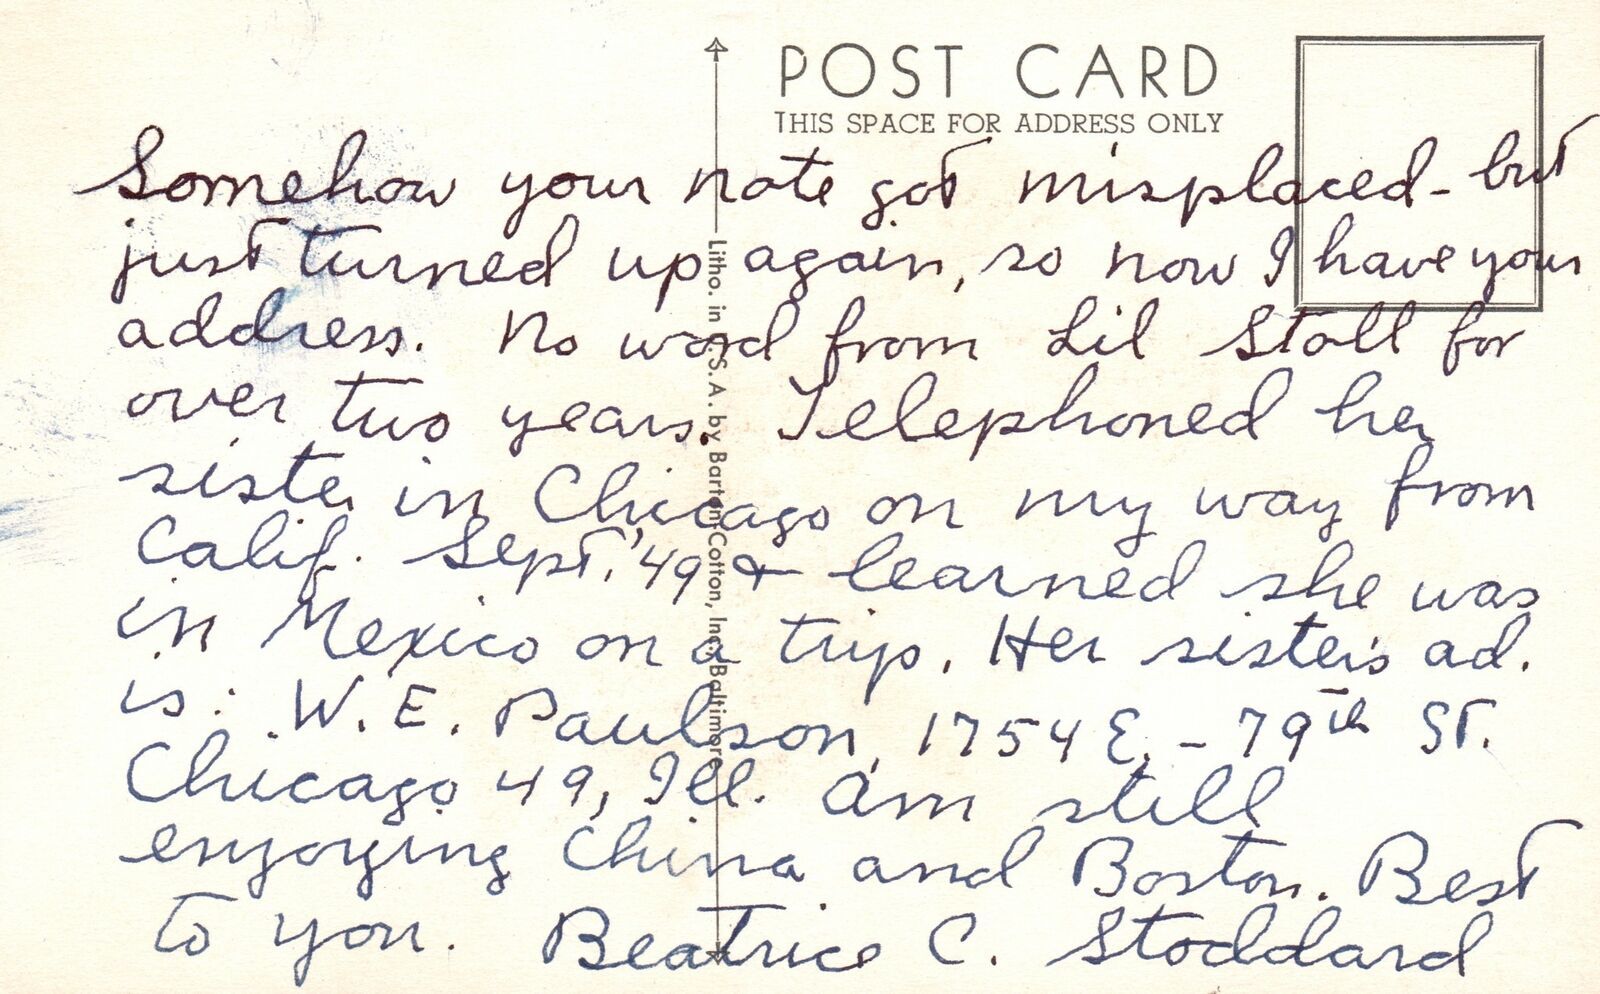 POST CARD
THIS SPACE FOR ADDRESS ONLY
Somehow your note got misplaced - but
just turned up again, so now I have your
address. No word from Lil Stoll for
over two years. Telephoned her
sister in Chicago on my way from
Calif. Sept. '49 & learned she was
in Mexico on a trip. Her sister's ad.
is: W. E. Paulson, 1754 E. - 79th St.
Chicago 49, Ill. Am still
enjoying China and Boston. Best
to you. Beatrice C. Stoddard
Litho. in U.S.A. by Barton-Cotton, Inc., Baltimore